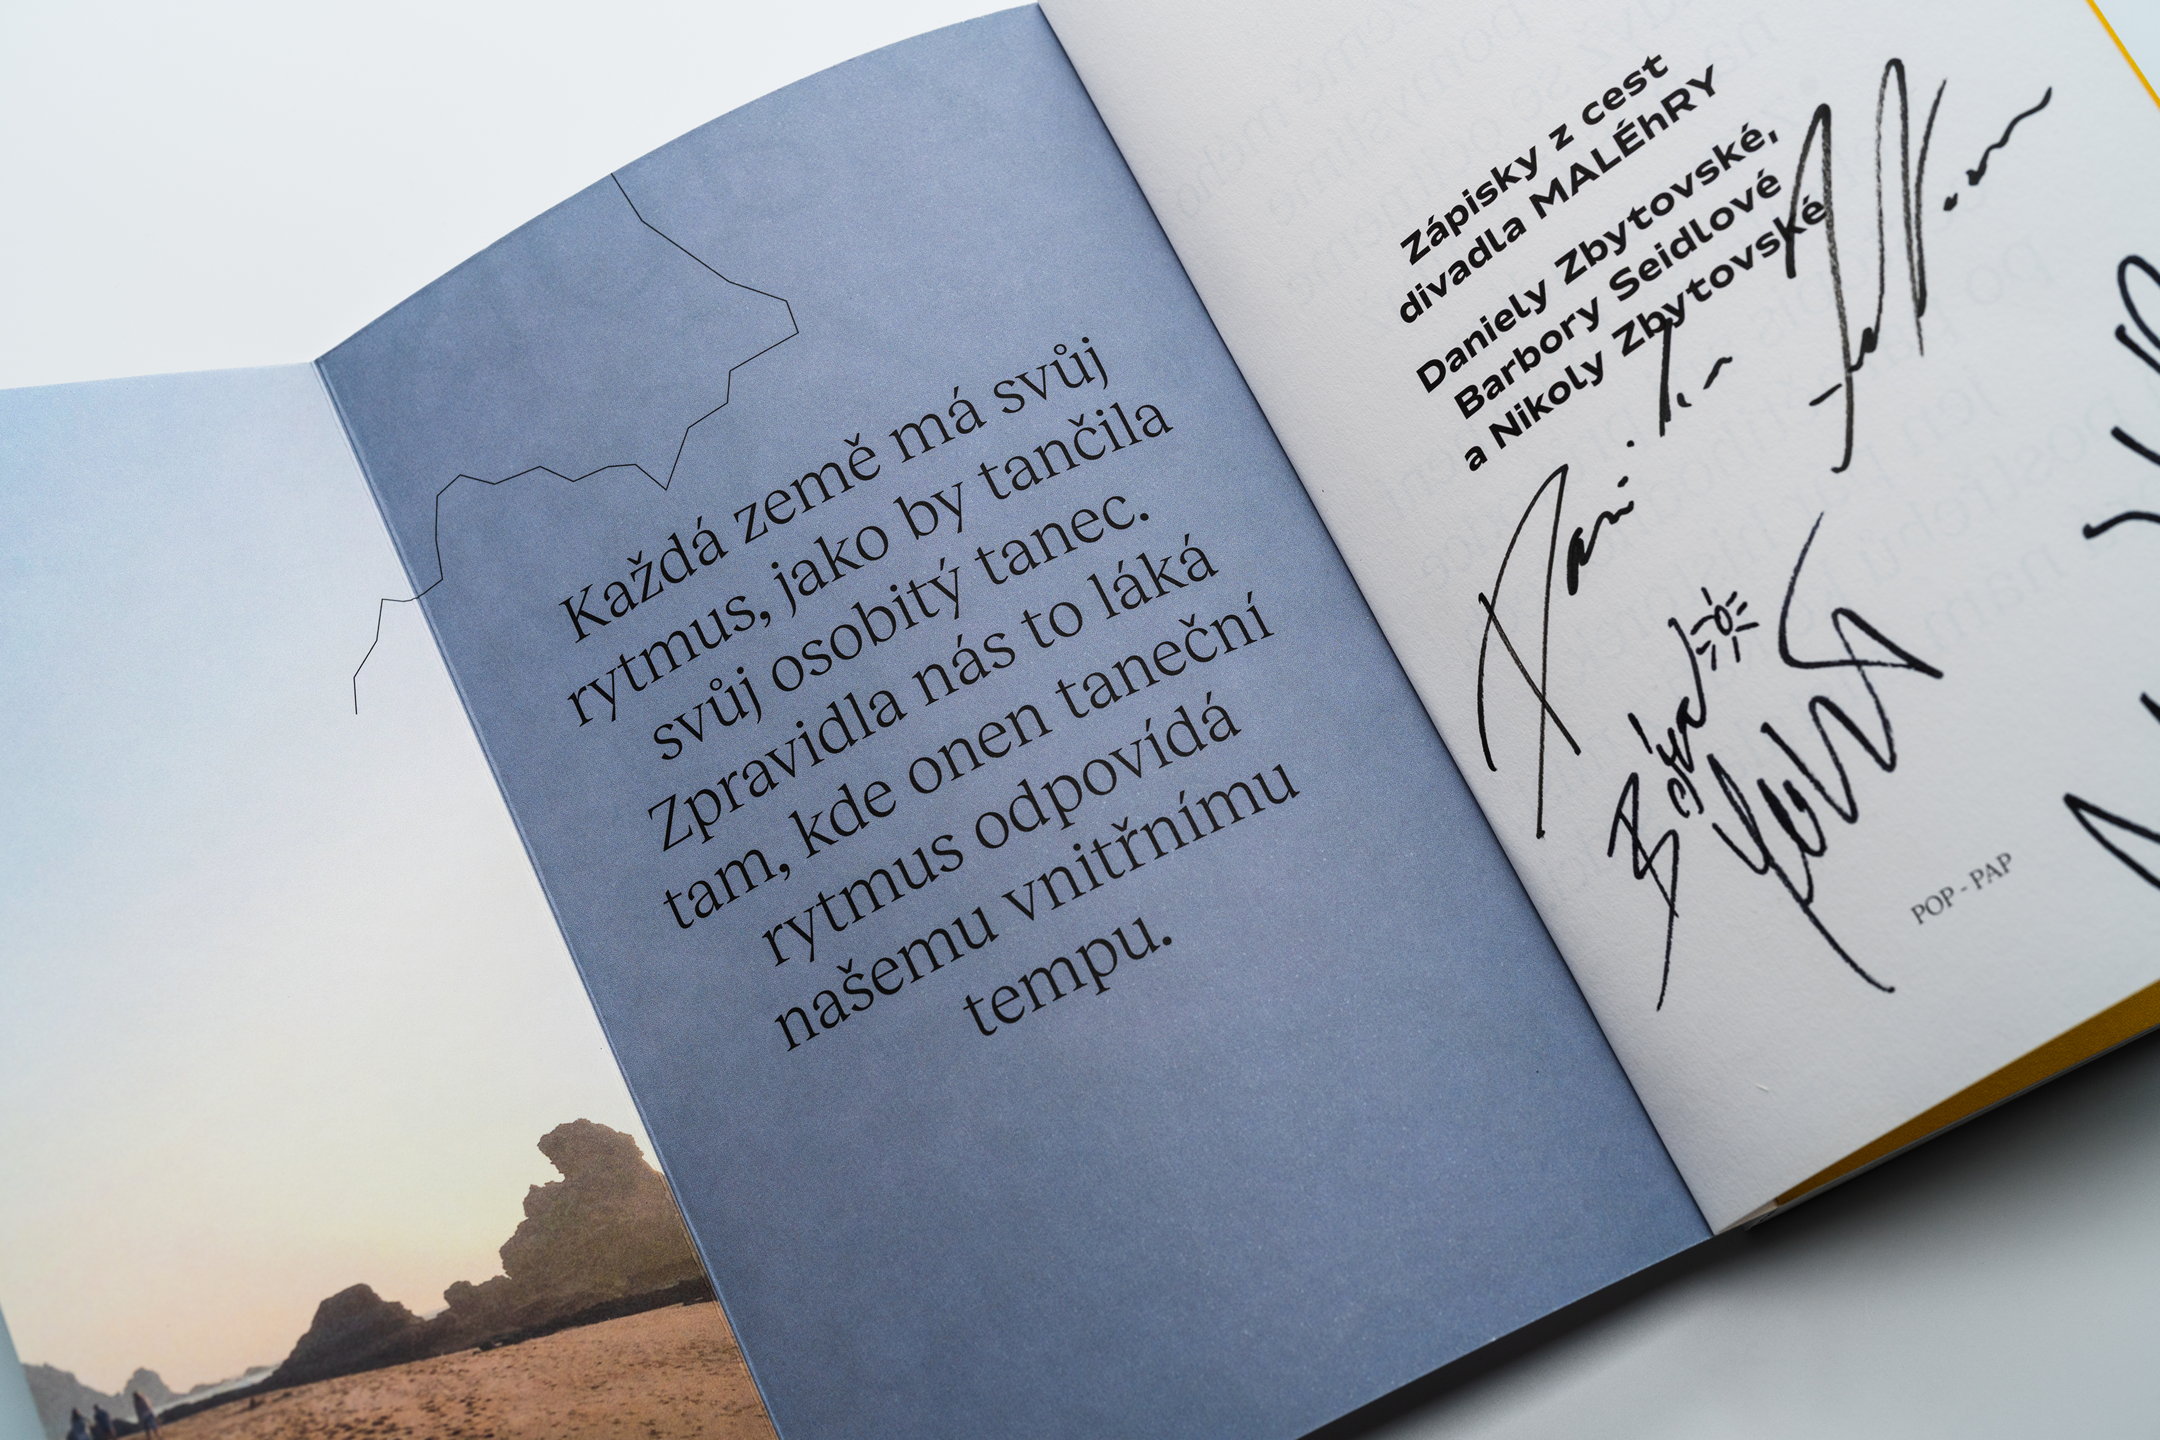 Každá země má svůj
rytmus, jako by tančila
svůj osobitý tanec.
Zpravidla nás to láká
tam, kde onen taneční
rytmus odpovídá
našemu vnitřnímu
tempu.
Zápisky z cest
divadla MALÉhRY
Daniely Zbytovské,
Barbory Seidlové
a Nikoly Zbytovské
POP - PAP